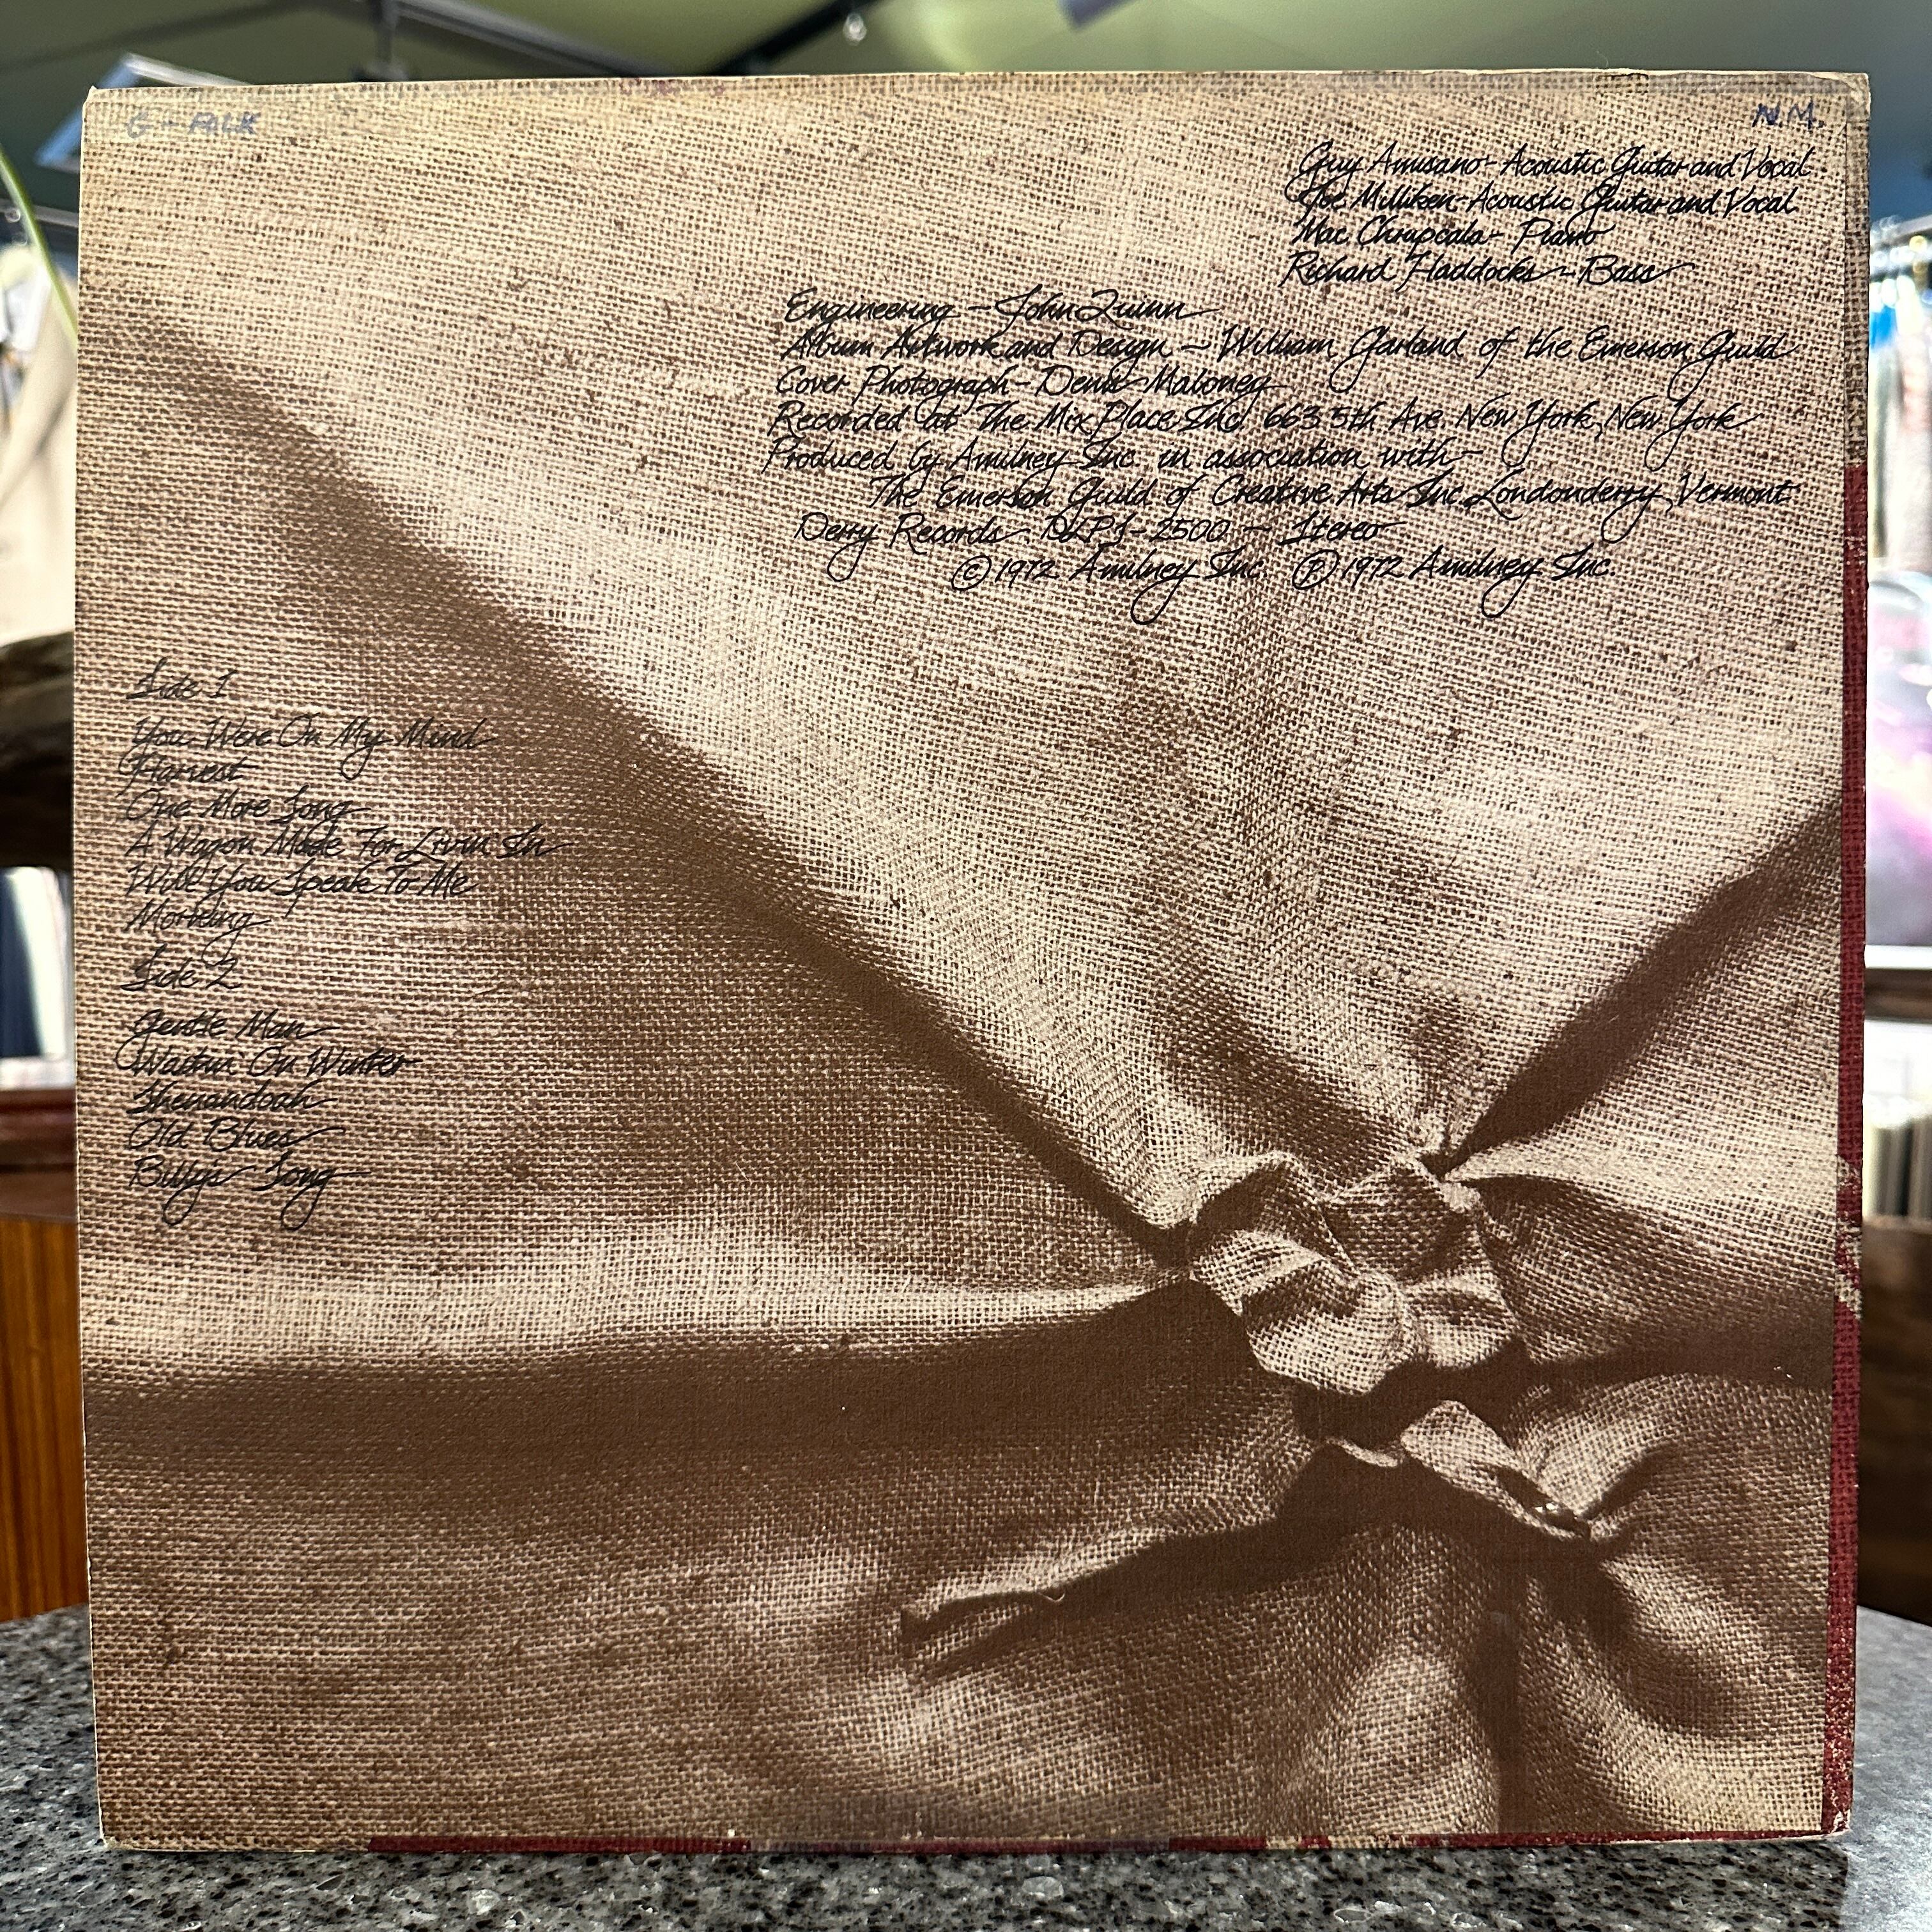 G - FOLK
N.M.
Guy Amusano - Acoustic Guitar and Vocal
Joe Milliken - Acoustic Guitar and Vocal
Mac Chrupcala - Piano
Richard Haddocks - Bass
Engineering - John Quinn
Album Artwork and Design - William Garland of the Emerson Guild
Cover Photograph - Denis Maloney
Recorded at The Mix Place Inc. 663 5th Ave. New York, New York
Produced by Amilney Inc. in association with
The Emerson Guild of Creative Arts Inc. Londonderry, Vermont
Derry Records DLPS-2500 - Stereo
© 1972 Amilney Inc. ℗ 1972 Amilney Inc.
Side 1
You Were On My Mind
Harvest
One More Song
A Wagon Made For Livin In
Will You Speak To Me
Morning
Side 2
Gentle Man
Waitin' On Winter
Shenandoah
Old Blues
Billy's Song